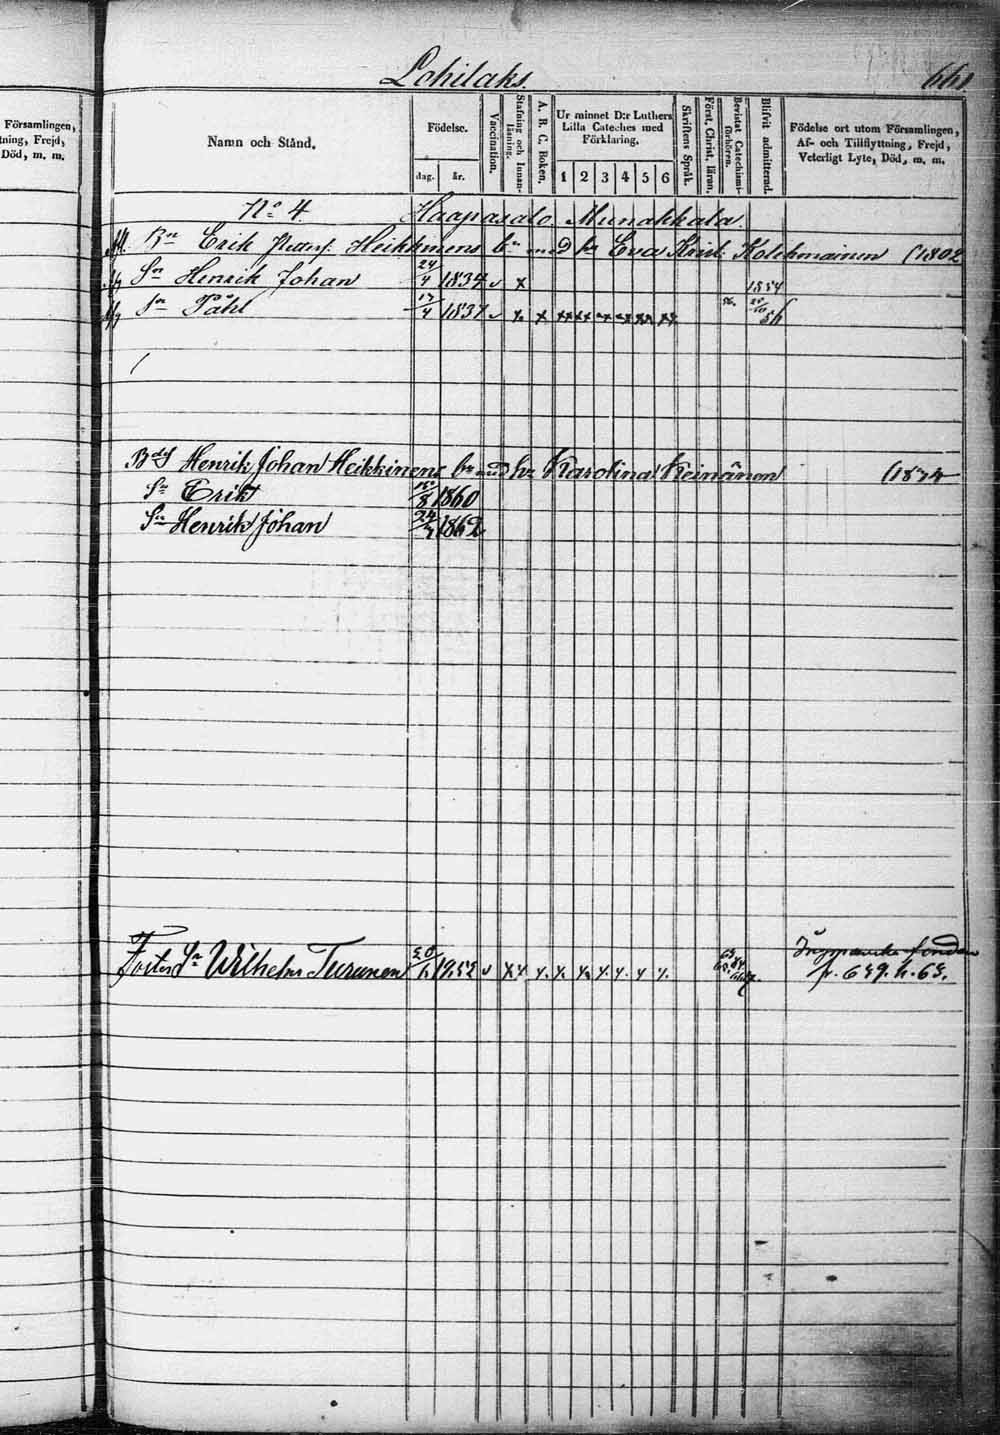 Lohilaks.
661
Församlingen,
tning, Frejd,
Död, m. m.
Namn och Stånd.
Födelse.
dag.
år.
Vaccination.
Stafning och Innanläsning.
A. B. C. Boken.
Ur minnet D:r Luthers
Lilla Cateches med
Förklaring.
1 2 3 4 5 6
Skriftens Språk.
Först. Christ. läran.
Bevistat Catechismiförhören.
Blifvit admitterad.
Födelse ort utom Församlingen,
Af- och Tillflyttning, Frejd,
Veterligt Lyte, Död, m. m.
No 4. Haapasalo. Munakkala.
Bn Erik Heikkinens bn med hr Eva Krist: Kolehmainen (1802
Sn Henrik Johan 24/4 1834 v x 1854
Sn Påhl 17/4 1837 v x x xx xx x x xx xx 56
Henrik Johan Heikkinens br med hr Karolina Keinänen (1834
Sn Erik /8 1860
Sn Henrik Johan 24/7 1862
Foster Sn Wilhelm Turunen 20/6 1952 v x x x x x x x x x
p. 639. h. 63.